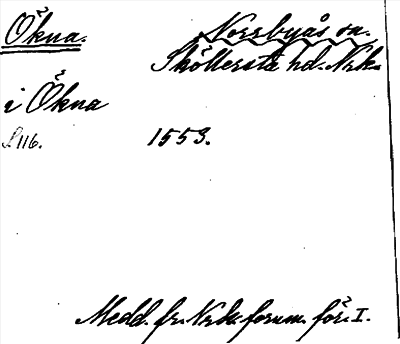 Ökna.
Norrbyås sn.
Sköllersta hd. Nrk.
i Ökna
1553.
Medd. fr. Nrk. fornm. för. I.